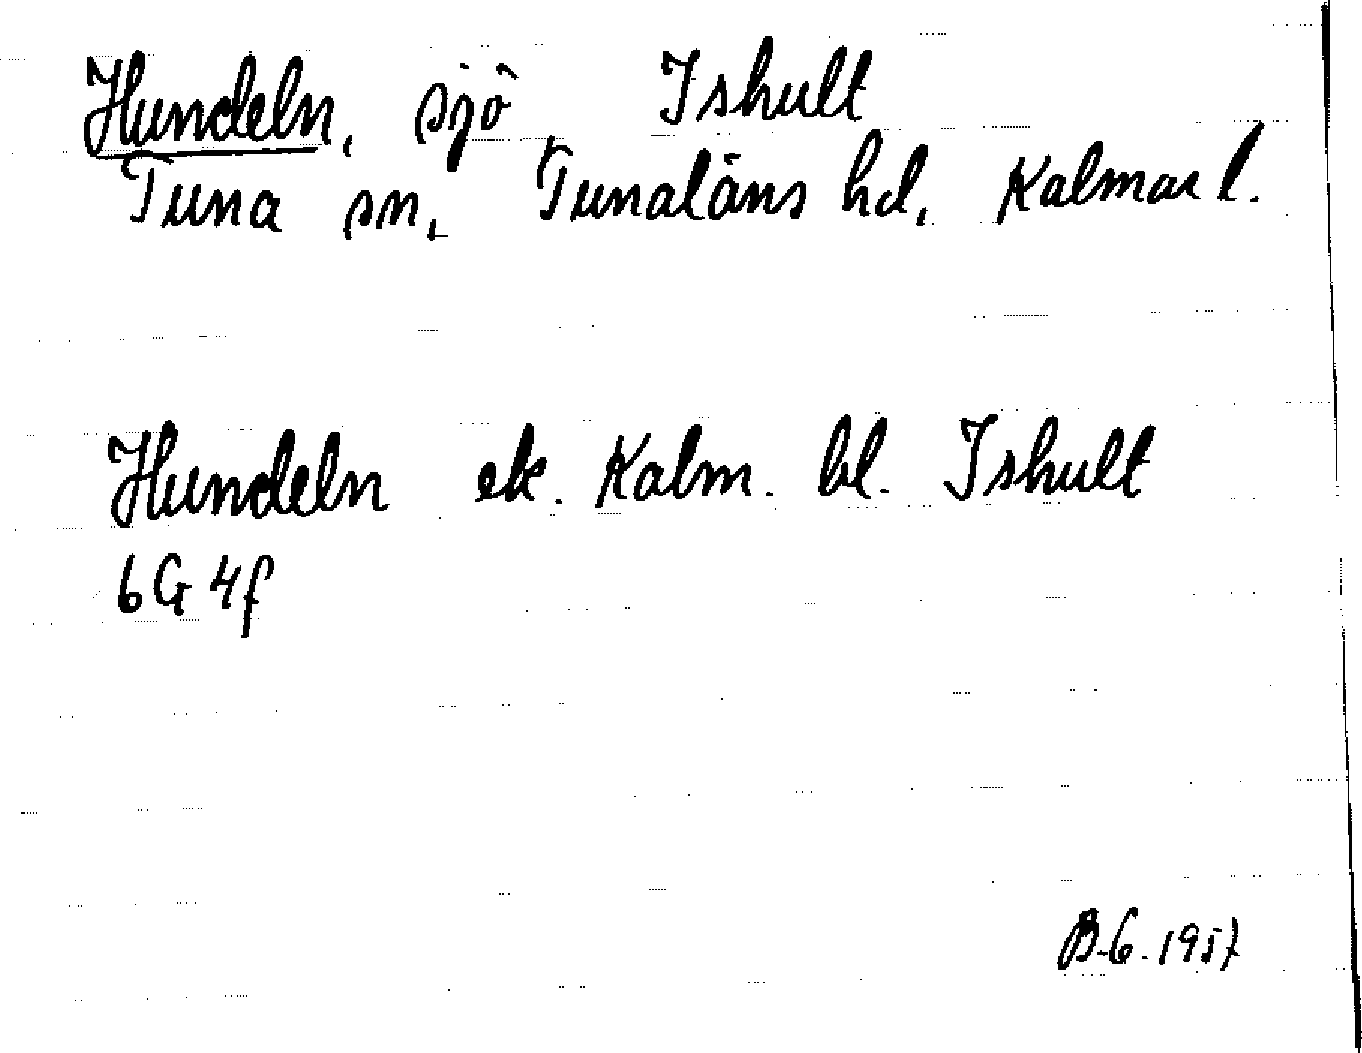 Hundeln, sjö, Ishult
Tuna sn, Tunaläns hd, Kalmar l.
Hundeln ek. Kalm. bl. Ishult
6G 4f
B-G. 1957